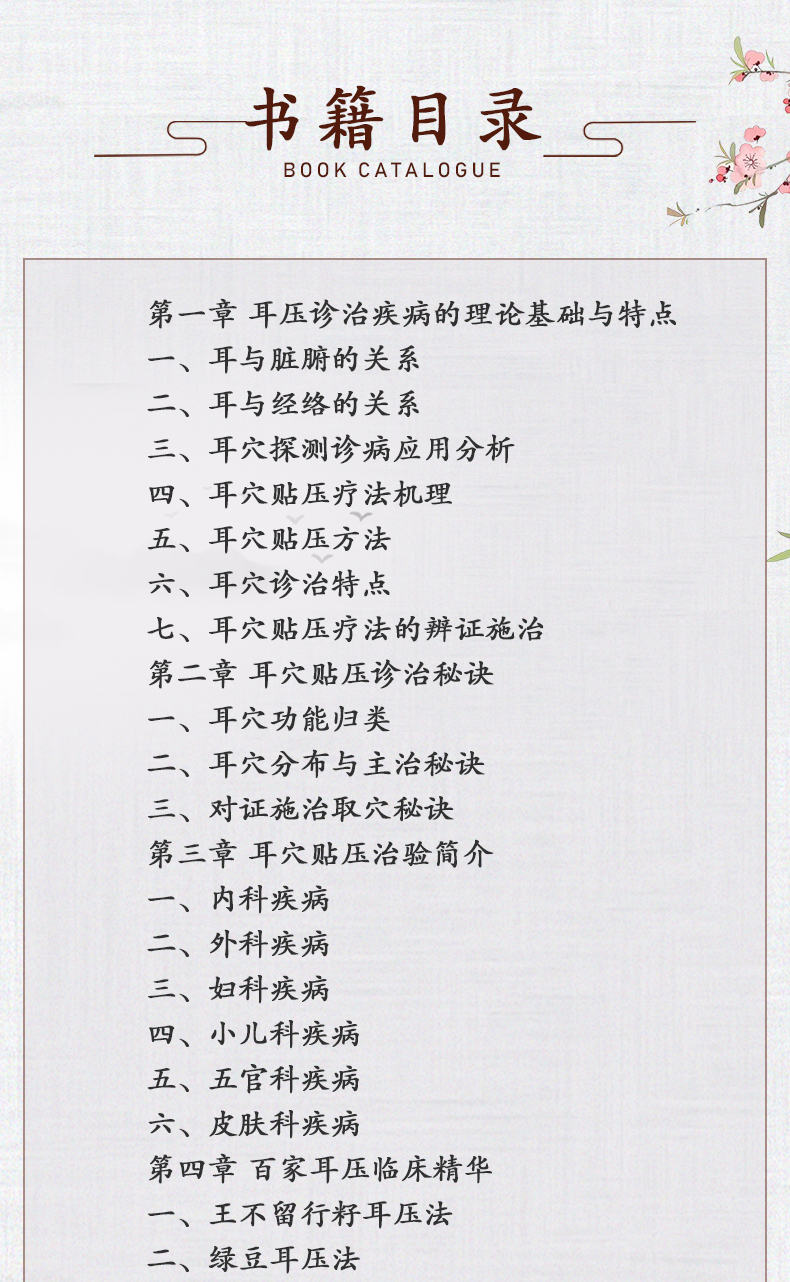 书籍目录
BOOK CATALOGUE
第一章 耳压诊治疾病的理论基础与特点
一、耳与脏腑的关系
二、耳与经络的关系
三、耳穴探测诊病应用分析
四、耳穴贴压疗法机理
五、耳穴贴压方法
六、耳穴诊治特点
七、耳穴贴压疗法的辨证施治
第二章 耳穴贴压诊治秘诀
一、耳穴功能归类
二、耳穴分布与主治秘诀
三、对证施治取穴秘诀
第三章 耳穴贴压治验简介
一、内科疾病
二、外科疾病
三、妇科疾病
四、小儿科疾病
五、五官科疾病
六、皮肤科疾病
第四章 百家耳压临床精华
一、王不留行籽耳压法
二、绿豆耳压法